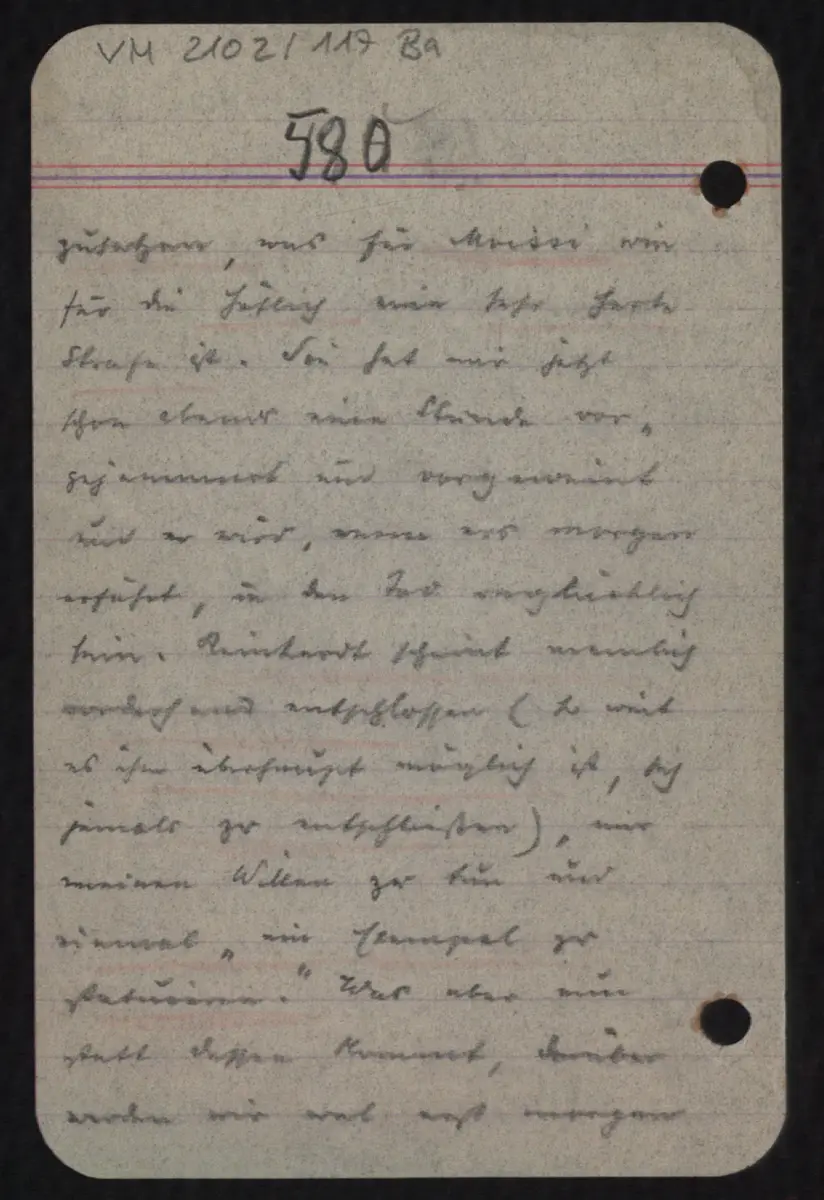 VM 2102/117 Ba
580
zusetzen, was für Moissi wie
für die Höflich eine sehr harte
Strafe ist. Sie hat mir jetzt
schon abends eine Stunde vor„
gejammert und vorgeweint
und er wird, wenn ers morgen
erfährt, in den Tod unglücklich
sein. Reinhardt scheint nemlich
vorderhand entschlossen (so weit
es ihm überhaupt möglich ist, sich
jemals zu entschließen), mir
meinen Willen zu tun und
einmal „ein Exempel zu
statuieren." Was aber nun
statt dessen kommt, darüber
werden wir wol erst morgen